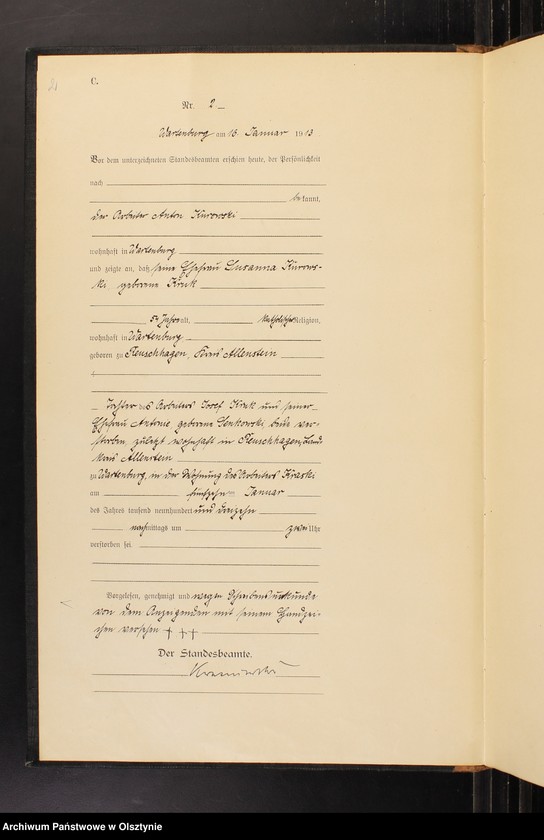 C.
Nr. 2
Wartenburg am 16. Januar 1913
Vor dem unterzeichneten Standesbeamten erschien heute, der Persönlichkeit
nach
bekannt,
der Arbeiter Anton Kurowski
wohnhaft in Wartenburg
und zeigte an, daß seine Ehefrau Susanna Kurows-
ki geborene Kruk
54 Jahre alt, katholischer Religion,
wohnhaft in Wartenburg
geboren zu Fleuschhagen, Kreis Allenstein
Tochter des Arbeiters Josef Kruk und seiner
Ehefrau Antonie geborene Senkowski, beide ver-
storben, zuletzt wohnhaft in Fleuschhagen, Land-
kreis Allenstein
zu Wartenburg, in der Wohnung des Arbeiters
am fünfzehn ten Januar
des Jahres tausend neunhundert und dreizehn
nachmittags um zwei Uhr
verstorben sei.
Vorgelesen, genehmigt und wegen Schreibensunkunde
von dem Anzeigenden mit seinem Handzei-
chen versehen † ††
Der Standesbeamte.
Archiwum Państwowe w Olsztynie